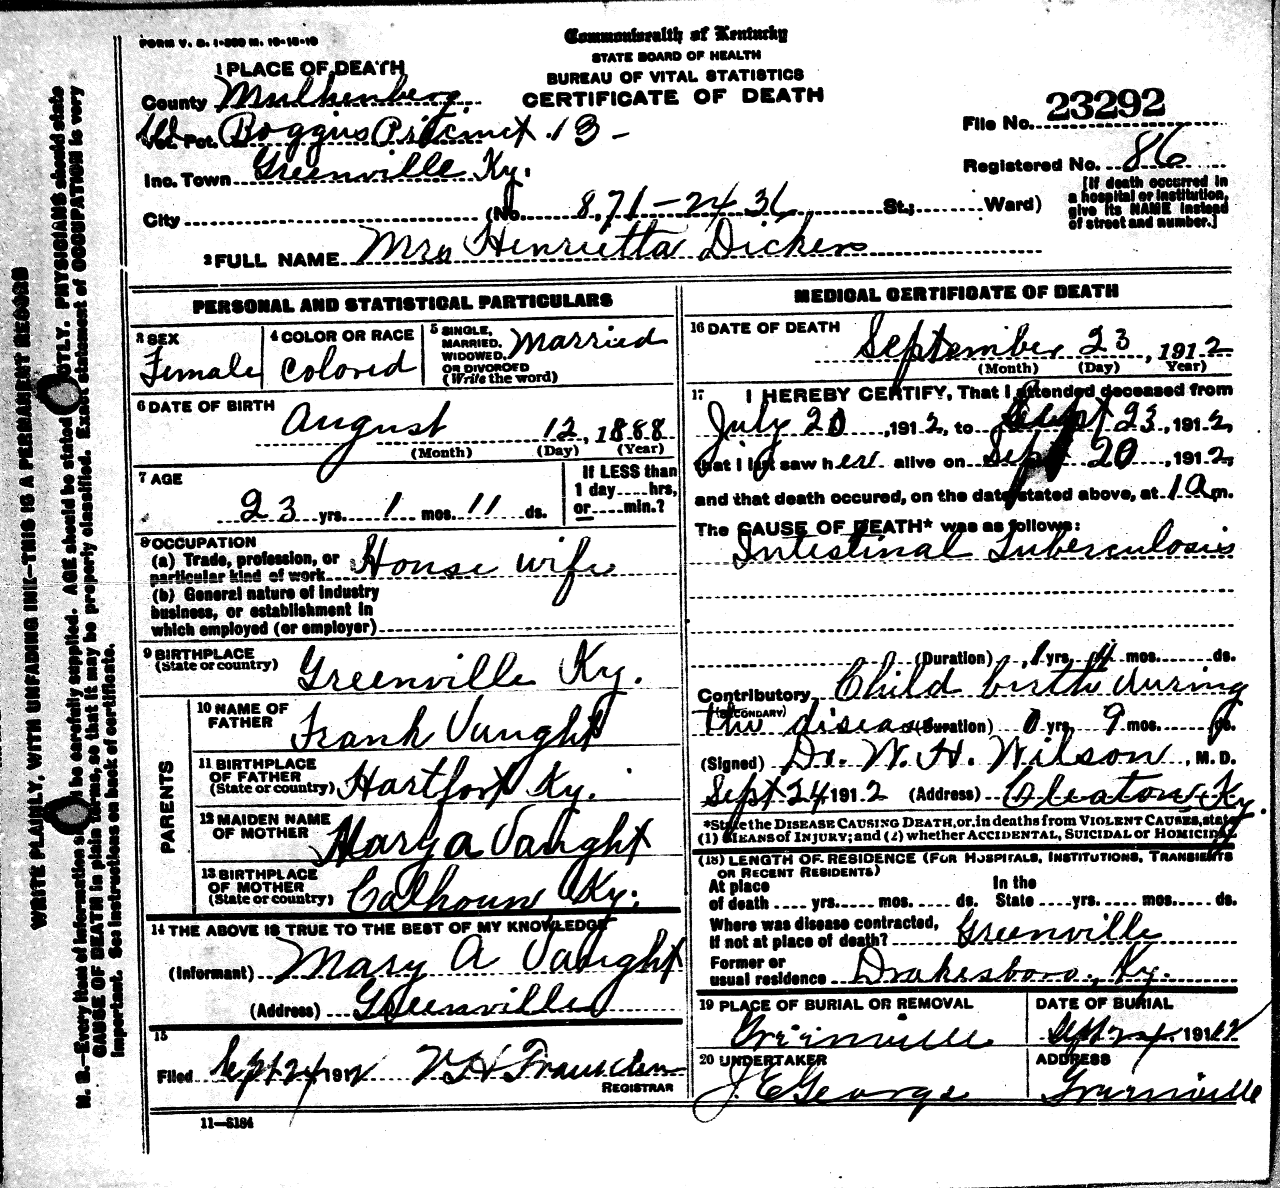 FORM V. S. 1-500 M. 10-18-10
Commonwealth of Kentucky
STATE BOARD OF HEALTH
BUREAU OF VITAL STATISTICS
CERTIFICATE OF DEATH
1 PLACE OF DEATH
County Muhlenberg
Vot. Pct. Boggus Precinct 13 -
Inc. Town Greenville Ky.
City (No. 8,71-24 36 St.; Ward)
File No. 23292
Registered No. 86
[If death occurred in
a hospital or institution,
give its NAME instead
of street and number.]
2 FULL NAME Mrs Henrietta Dicken
PERSONAL AND STATISTICAL PARTICULARS
3 SEX
Female
4 COLOR OR RACE
Colored
5 SINGLE,
MARRIED,
WIDOWED,
OR DIVORCED
(Write the word)
Married
6 DATE OF BIRTH
August 12, 1888
(Month) (Day) (Year)
7 AGE
23 yrs. 1 mos. 11 ds.
If LESS than
1 day....hrs,
or....min.?
8 OCCUPATION
(a) Trade, profession, or
particular kind of work House wife
(b) General nature of industry
business, or establishment in
which employed (or employer)
9 BIRTHPLACE
(State or country) Greenville Ky.
PARENTS
10 NAME OF
FATHER Frank Vaught
11 BIRTHPLACE
OF FATHER
(State or country) Hartfort Ky.
12 MAIDEN NAME
OF MOTHER Mary a Vaught
13 BIRTHPLACE
OF MOTHER
(State or country) Calhoun Ky.
14 THE ABOVE IS TRUE TO THE BEST OF MY KNOWLEDGE
(Informant) Mary A Vaught
(Address) Greenville
15
Filed Sept 24 1912
REGISTRAR
11-5184
MEDICAL CERTIFICATE OF DEATH
16 DATE OF DEATH
September 23, 1912
(Month) (Day) (Year)
17 I HEREBY CERTIFY, That I attended deceased from
July 20, 1912, to Sept 23, 1912,
that I last saw her alive on Sept 20, 1912,
and that death occured, on the date stated above, at 1 a m.
The CAUSE OF DEATH* was as follows:
Intestinal Tuberculosis
(Duration) 1 yrs. 4 mos. ds.
Contributory Child birth during
(SECONDARY)
the disease (Duration) 0 yrs. 9 mos. ds.
(Signed) Dr. W. H. Wilson, M. D.
Sept 24 1912 (Address) Cleaton Ky.
*State the DISEASE CAUSING DEATH, or, in deaths from VIOLENT CAUSES, state
(1) MEANS of INJURY; and (2) whether ACCIDENTAL, SUICIDAL or HOMICIDAL
(18) LENGTH OF RESIDENCE (FOR HOSPITALS, INSTITUTIONS, TRANSIENTS
OR RECENT RESIDENTS)
At place
of death .... yrs..... mos..... ds.
In the
State ....yrs...... mos.....ds.
Where was disease contracted,
if not at place of death? Greenville
Former or
usual residence Drakesboro, Ky.
19 PLACE OF BURIAL OR REMOVAL
Greenville
DATE OF BURIAL
Sept 24, 1912
20 UNDERTAKER
J. E George
ADDRESS
Greenville
WRITE PLAINLY, WITH UNFADING INK-THIS IS A PERMANENT RECORD
N. B.-Every item of information should be carefully supplied. AGE should be stated EXACTLY. PHYSICIANS should state
CAUSE OF DEATH in plain terms, so that it may be properly classified. Exact statement of OCCUPATION is very
important. See instructions on back of certificate.